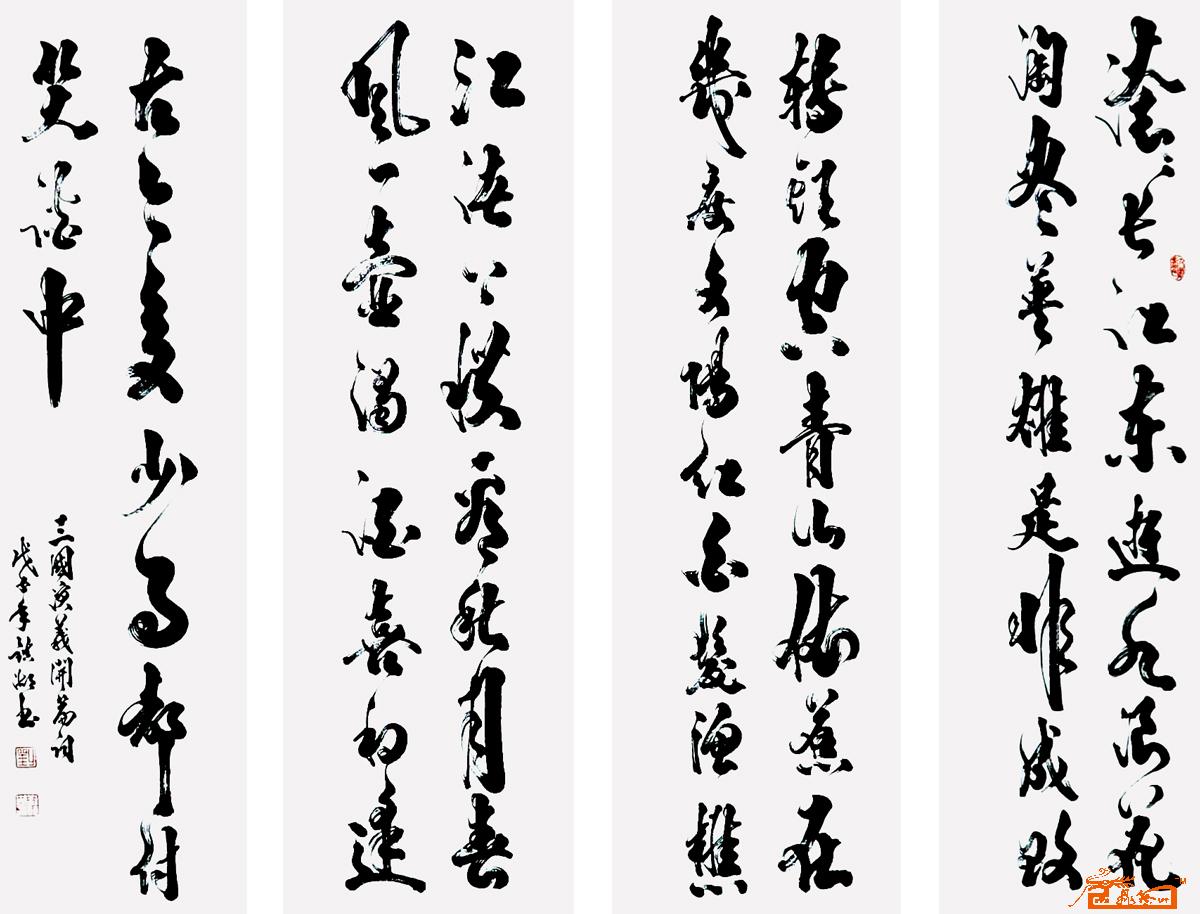 滚滚长江东逝水浪花
淘尽英雄是非成败
轉頭空青山依舊在
幾度夕陽红白髮漁樵
江渚上惯看秋月春
風一壺濁酒喜相逢
古今多少事都付
笑谈中
三國演義開篇词
戊子年书